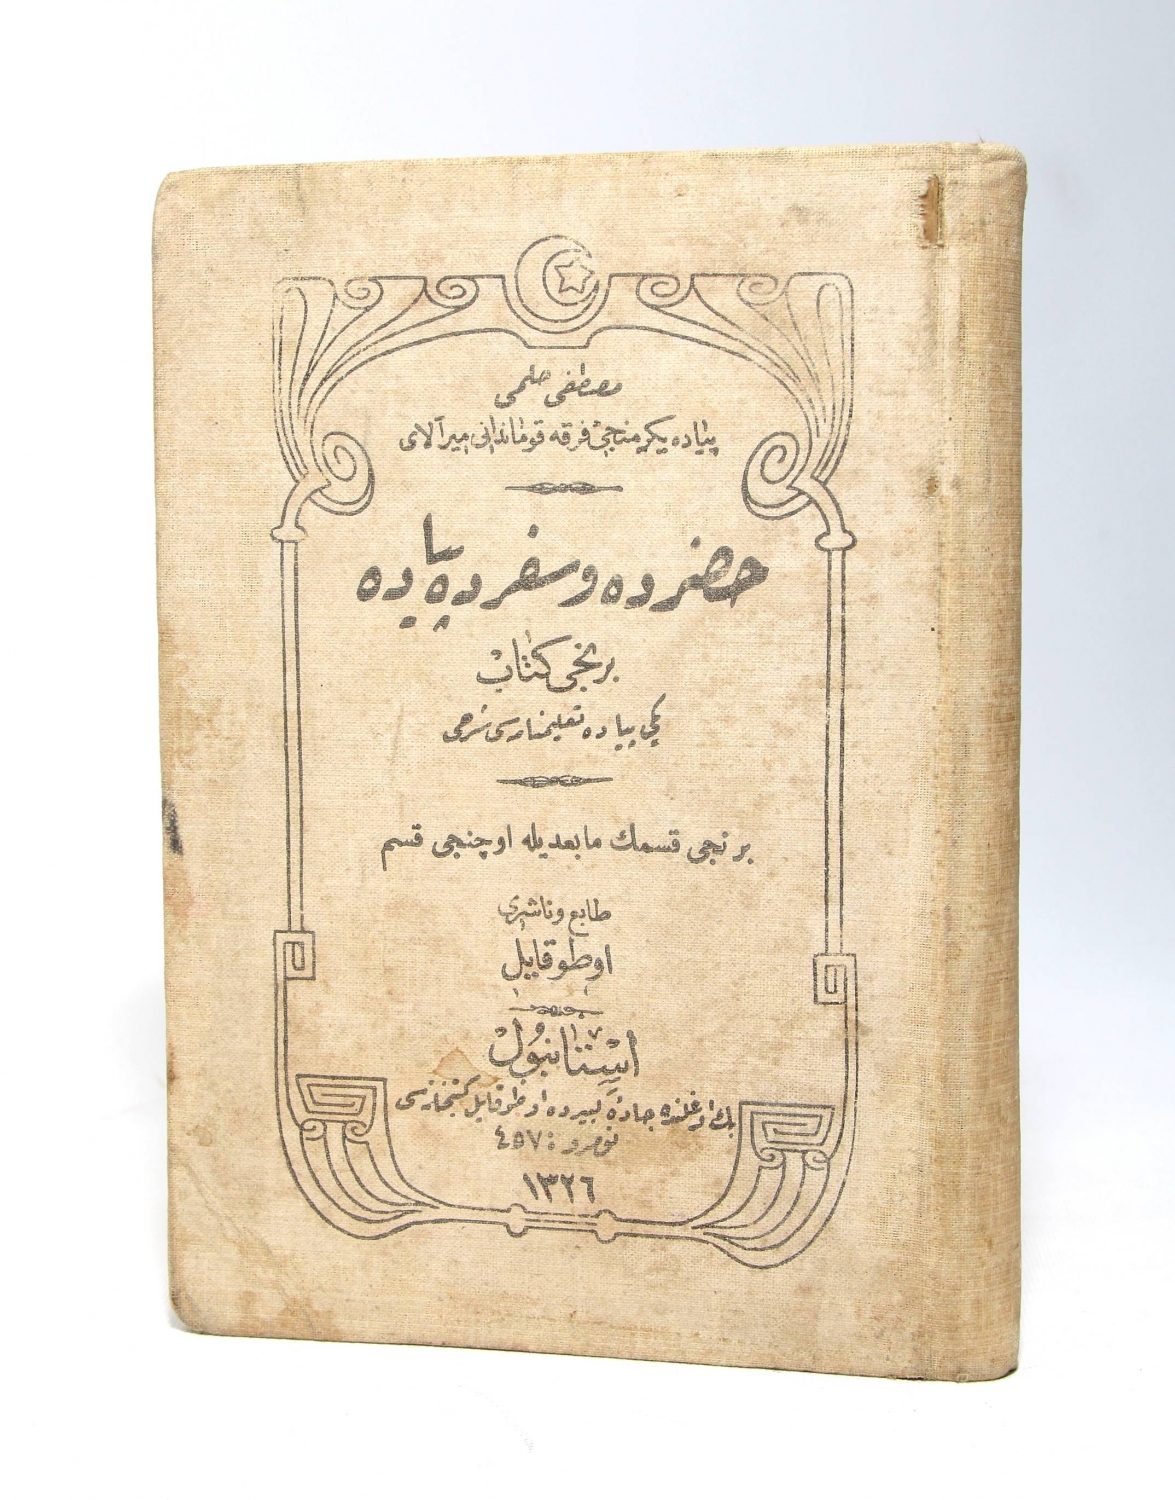 مصطفى حلمى
پیاده یكرمنجى فرقه قوماندانى میرآلاى
حضرده و سفرده پیاده
برنجى كتاب
یكى پیاده تعلیمنامه‌سى شرحى
برنجى قسمك مابعدیله اوچنجى قسم
طابع و ناشرى
اوطو قایل
استانبول
بك اوغلنده جادۀ كبیرده اوطو قایل كتبخانه‌سى
نومرو : ٤٥٧
١٣٢٦